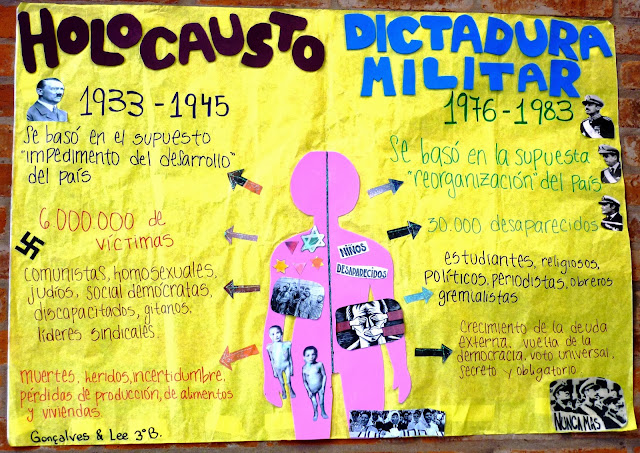 HOLOCAUSTO
1933 - 1945
Se basó en el supuesto
"impedimento del desarrollo"
del país
6.000.000 de
víctimas
comunistas, homosexuales,
judíos, social demócratas,
discapacitados, gitanos,
líderes sindicales.
muertes, heridos, incertidumbre,
pérdidas de producción, de alimentos
y viviendas.
Gonçalves & Lee 3°B.
NIÑOS
DESAPARECIDOS
DICTADURA
MILITAR
1976 - 1983
Se basó en la supuesta
"reorganización" del país
30.000 desaparecidos
estudiantes, religiosos,
políticos, periodistas, obreros
gremialistas
Crecimiento de la deuda
externa, vuelta de la
democracia, voto universal,
secreto y obligatorio
NUNCA MÁS